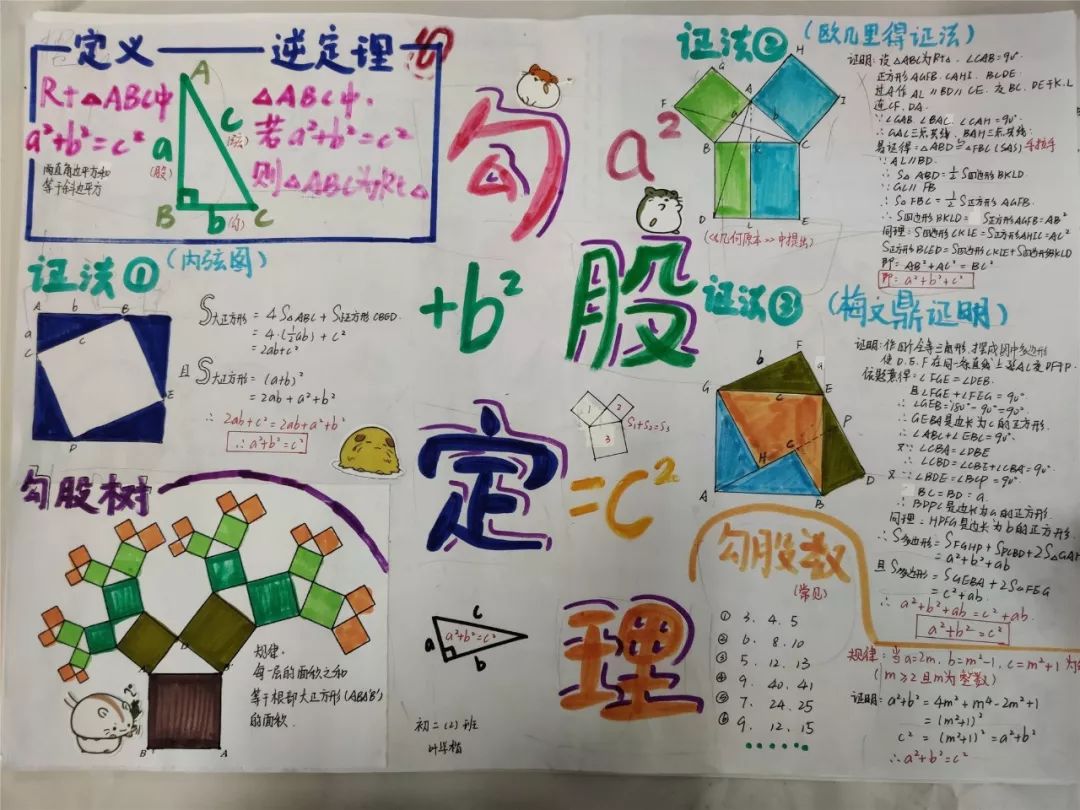 定义
逆定理
Rt△ABC中
a²+b²=c²
两直角边平方和
等于斜边平方
A
a
(股)
c
(弦)
B
b
(勾)
C
△ABC中,
若a²+b²=c²
则△ABC为Rt△
勾
股
定
理
a²
+b²
=c²
证法①
(内弦图)
A
b
B
a
C
c
E
D
S大正方形 = 4S△ABC + S正方形CBED
= 4·(½ab) + c²
= 2ab+c²
且 S大正方形 = (a+b)²
= 2ab + a²+b²
∴ 2ab+c² = 2ab+a²+b²
∴ a²+b²=c²
勾股树
A'
B'
B
A
规律:
每一层的面积之和
等于根部大正方形(ABA'B')
的面积
1
2
3
S₁+S₂=S₃
a
c
b
a²+b²=c²
初二(2)班
证法②
(欧几里得证法)
H
G
F
A
I
B
C
D
L
E
(《几何原本》中提出)
证明: 设△ABC为Rt△, ∠CAB=90°
正方形AGFB, CAHI, BCDE
过A作AL∥BD∥CE, 交BC, DE于K.L
连CF, DA.
∵∠GAB, ∠BAC, ∠CAH=90°
∴GAC三点共线, BAH三点共线
易证得: △ABD≌△FBC(SAS) 手拉手
∵AL∥BD
∴S△ABD=½S四边形BKLD
∵GC∥FB
∴S△FBC=½S正方形AGFB
∴S四边形BKLD=S正方形AGFB=AB²
同理: S四边形CKLE=S正方形AHIC=AC²
S正方形BCED=S四边形CKLE+S四边形BKLD
即: AB²+AC²=BC²
即: a²+b²+c²
证法③
(梅文鼎证明)
F
b
a
G
c
E
P
C
H
D
A
B
证明: 作四个全等三角形, 摆成图中多边形
使D.E.F在同一条直线上延AC交DF于P.
依题意得: ∠FGE=∠DEB.
且∠FGE+∠FEG=90°
∴∠GEB=180°-90°=90°
∴GEBA是边长为c的正方形.
∴∠ABC+∠EBC=90°
又∵∠CBA=∠DBE
∴∠CBD=∠CBE+∠CBA=90°
又∵∠BDE=∠BCP=90°
BC=BD=a.
∴BDPC是边长为a的正方形.
同理: HPFG是边长为b的正方形
∴S多边形=SFGHP+SPCBD+2S△GAH
= a²+b²+ab
且S多边形=SGEBA+2S△FEG
= c²+ab.
∴a²+b²+ab=c²+ab.
a²+b²=c²
勾股数
(常见)
① 3. 4. 5
② 6. 8. 10
③ 5. 12. 13
④ 9. 40. 41
⑤ 7. 24. 25
⑥ 9. 12. 15
......
规律: 当a=2m, b=m²-1, c=m²+1 为
(m≥2且m为整数)
证明: a²+b²=4m²+m⁴-2m²+1
=(m²+1)²
c²=(m²+1)²=a²+b²
∴a²+b²=c²